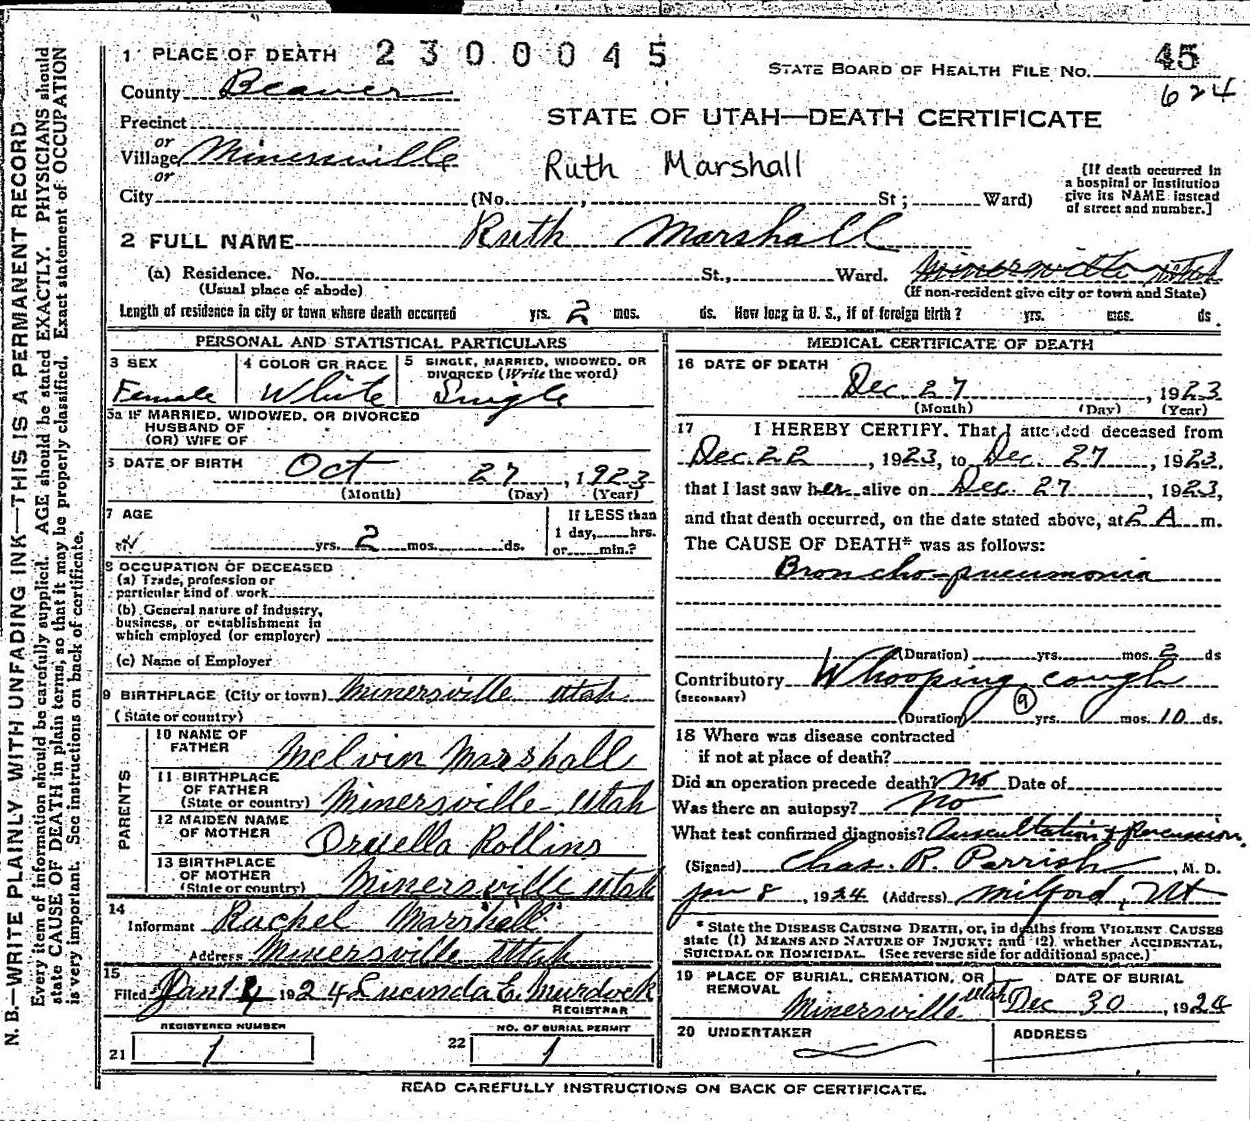 1 PLACE OF DEATH 2300045
STATE BOARD OF HEALTH FILE NO. 45
624
County Beaver
STATE OF UTAH—DEATH CERTIFICATE
Precinct
or
Village Minersville
Ruth Marshall
or
City (No. , St; Ward)
[If death occurred in
a hospital or institution
give its NAME instead
of street and number.]
2 FULL NAME Ruth Marshall
(a) Residence. No. St., Ward. Minersville Utah
(Usual place of abode) (If non-resident give city or town and State)
Length of residence in city or town where death occurred yrs. 2 mos. ds. How long in U. S., if of foreign birth? yrs. mos. ds.
PERSONAL AND STATISTICAL PARTICULARS
3 SEX 4 COLOR OR RACE 5 SINGLE, MARRIED, WIDOWED, OR
DIVORCED (Write the word)
Female White Single
5a IF MARRIED, WIDOWED, OR DIVORCED
HUSBAND OF
(OR) WIFE OF
6 DATE OF BIRTH Oct 27, 1923
(Month) (Day) (Year)
7 AGE If LESS than
1 day, hrs.
yrs. 2 mos. ds. or min.?
8 OCCUPATION OF DECEASED
(a) Trade, profession or
particular kind of work
(b) General nature of industry,
business, or establishment in
which employed (or employer)
(c) Name of Employer
9 BIRTHPLACE (City or town) Minersville Utah
(State or country)
PARENTS
10 NAME OF
FATHER Melvin Marshall
11 BIRTHPLACE
OF FATHER
(State or country) Minersville Utah
12 MAIDEN NAME
OF MOTHER Oruella Rollins
13 BIRTHPLACE
OF MOTHER
(State or country) Minersville Utah
14
Informant Rachel Marshall
Address Minersville Utah
15
Filed Jan 14 1924 Lucinda E. Murdock
REGISTRAR
REGISTERED NUMBER NO. OF BURIAL PERMIT
21 1 22 1
MEDICAL CERTIFICATE OF DEATH
16 DATE OF DEATH
Dec 27, 1923
(Month) (Day) (Year)
17 I HEREBY CERTIFY, That I attended deceased from
Dec. 22, 1923, to Dec. 27, 1923,
that I last saw her alive on Dec. 27, 1923,
and that death occurred, on the date stated above, at 2 A m.
The CAUSE OF DEATH* was as follows:
Broncho-pneumonia
(Duration) yrs. mos. 2 ds
Contributory Whooping cough
(SECONDARY) 9
(Duration) yrs. mos. 10 ds.
18 Where was disease contracted
if not at place of death?
Did an operation precede death? No Date of
Was there an autopsy? No
What test confirmed diagnosis? Auscultation & Percussion.
(Signed) Chas. R. Parrish, M. D.
Jan 8, 1924 (Address) Milford, Ut
* State the DISEASE CAUSING DEATH, or, in deaths from VIOLENT CAUSES
state (1) MEANS AND NATURE OF INJURY; and (2) whether ACCIDENTAL,
SUICIDAL OR HOMICIDAL. (See reverse side for additional space.)
19 PLACE OF BURIAL, CREMATION, OR
REMOVAL Minersville Utah
DATE OF BURIAL
Dec 30, 1924
20 UNDERTAKER ADDRESS
READ CAREFULLY INSTRUCTIONS ON BACK OF CERTIFICATE.
N. B.—WRITE PLAINLY WITH UNFADING INK—THIS IS A PERMANENT RECORD
Every item of information should be carefully supplied. AGE should be stated EXACTLY. PHYSICIANS should
state CAUSE OF DEATH in plain terms, so that it may be properly classified. Exact statement of OCCUPATION
is very important. See instructions on back of certificate.